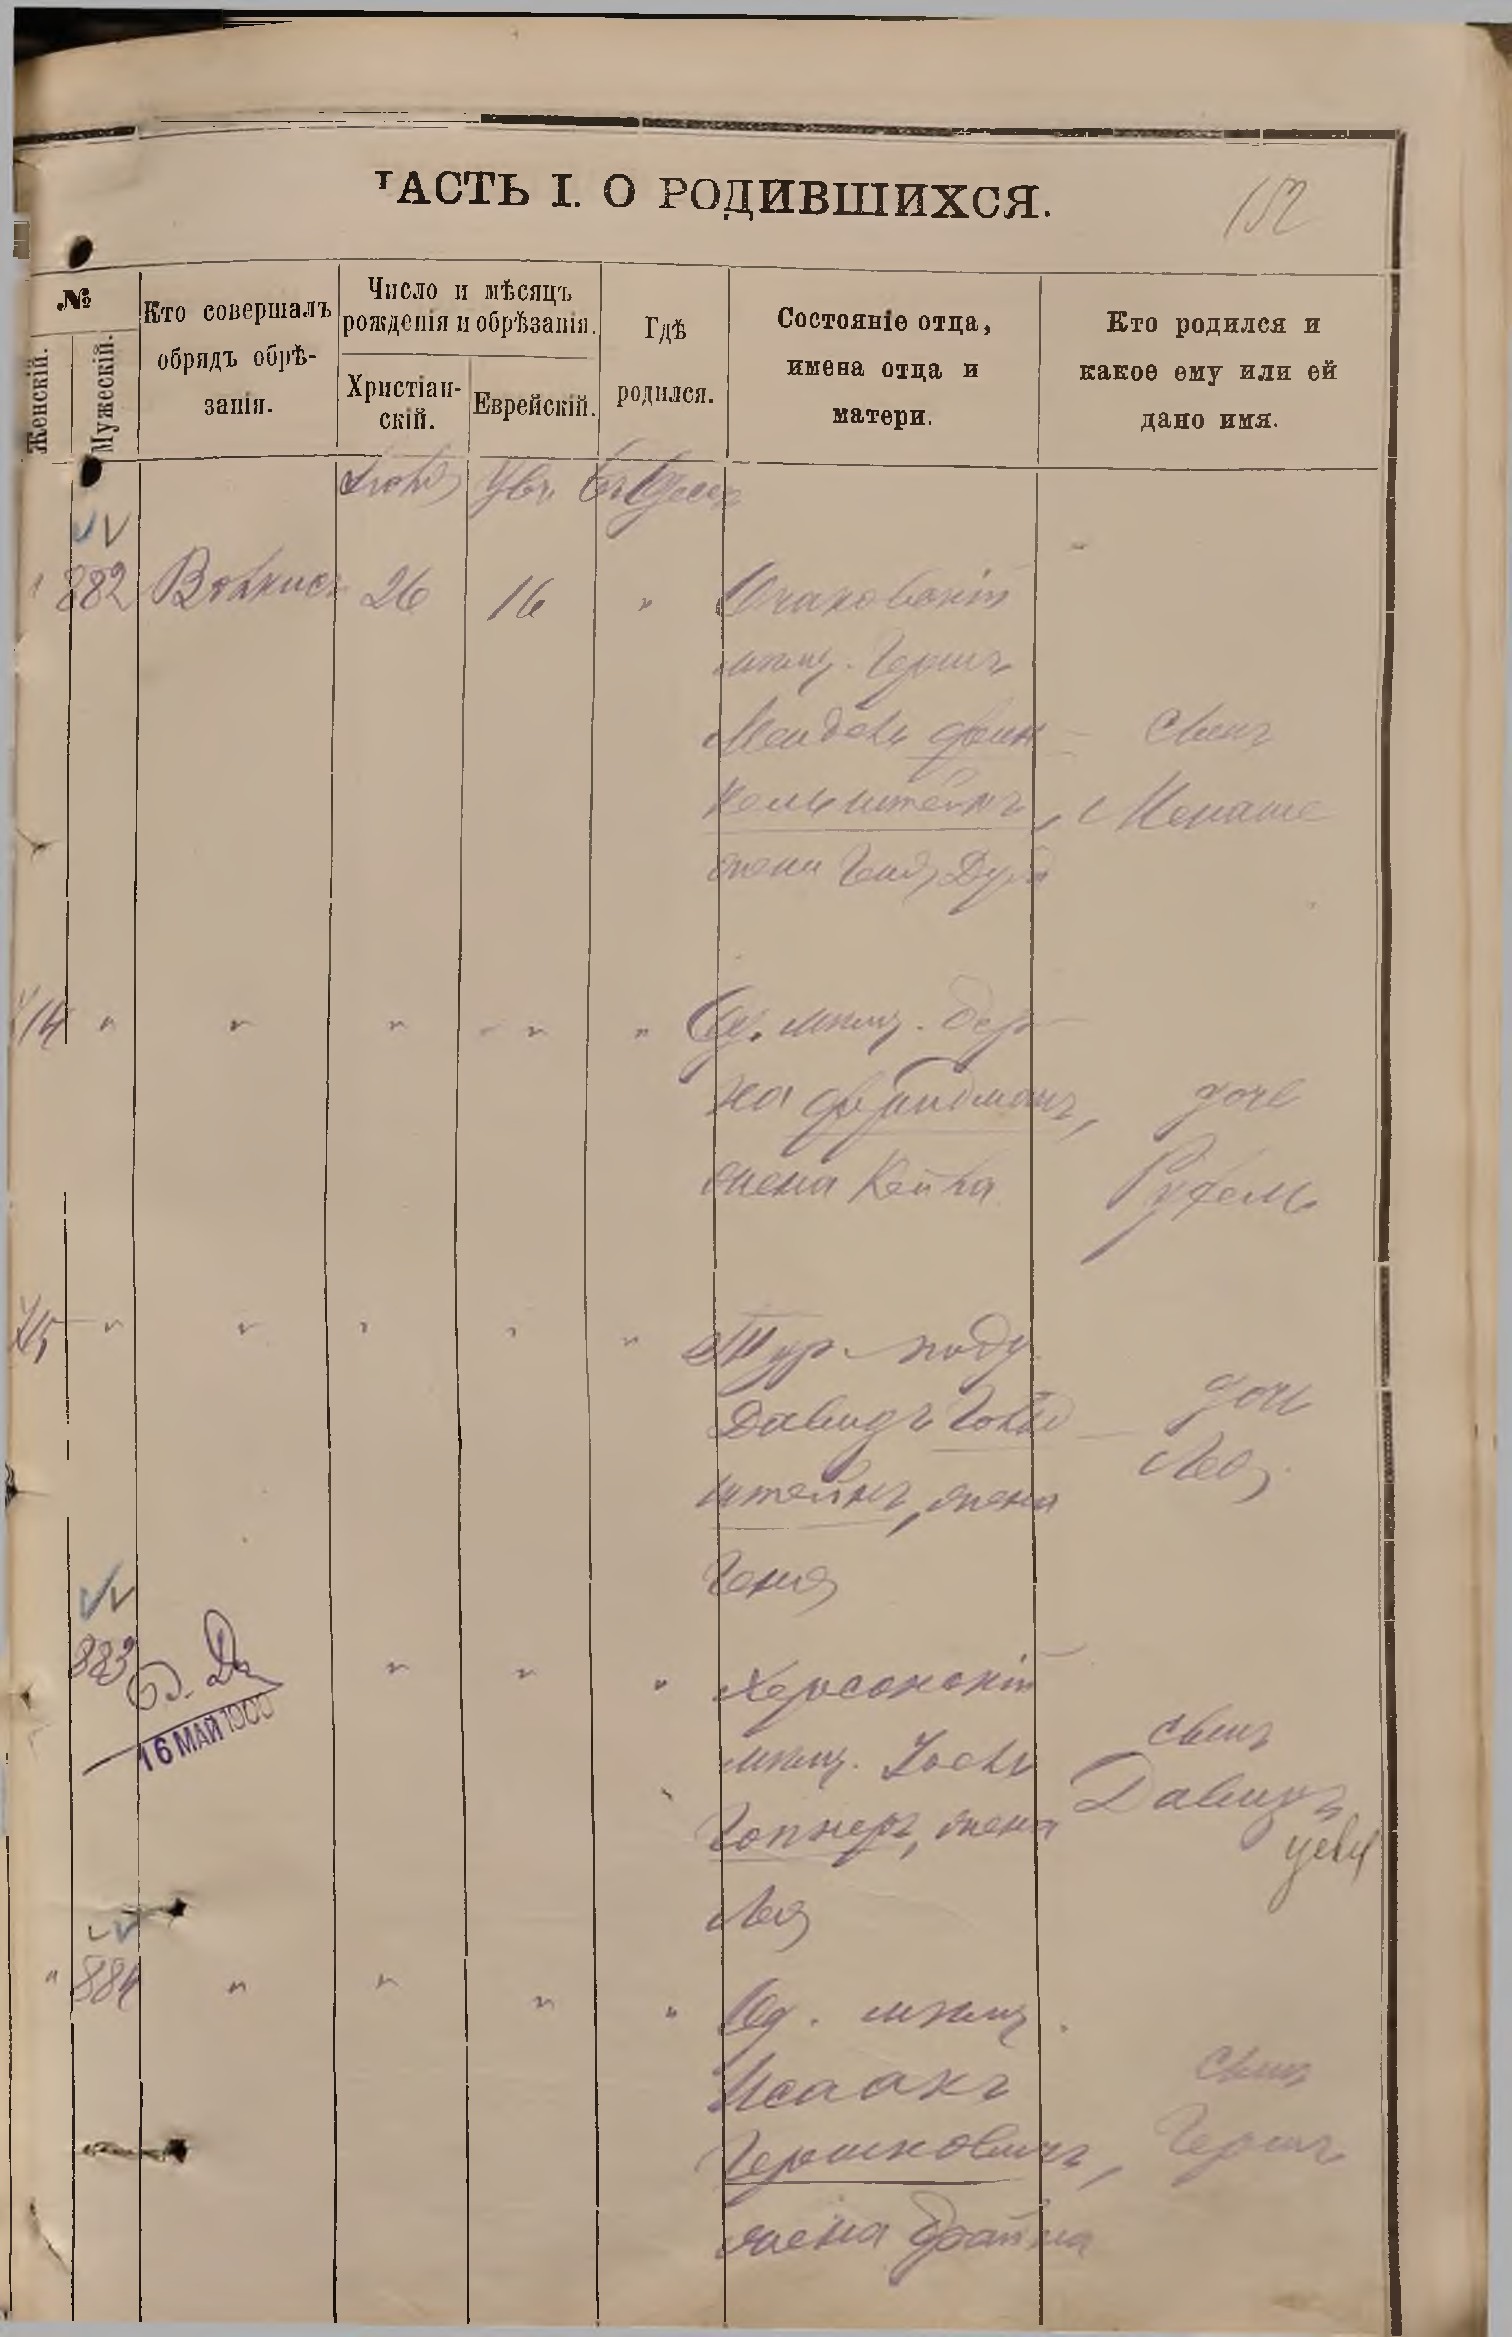 ЧАСТЬ I. О РОДИВШИХСЯ.
152
№
Женскій.
Мужескій.
Кто совершалъ обрядъ обрѣ-
занія.
Число и мѣсяцъ
рожденія и обрѣзанія.
Христіан-
скій.
Еврейскій.
Гдѣ
родился.
Состояніе отца,
имена отца и
матери.
Кто родился и
какое ему или ей
дано имя.
882
26
16
"
Очаковскій
мѣщ. Гершъ
Мендель Фин
кельштейнъ,
жена
сынъ
Менаше
14
"
"
"
"
"
Од. мѣщ. Бер
ка Фридманъ,
жена Кейла
дочь
Рухель
15
"
"
"
"
"
Тур. подд.
Давидъ Гольд
штейнъ, жена
Геня
дочь
Лея
883
16 МАЙ 1900
"
"
"
Херсонскій
мѣщ. Іосль
Гопнеръ, жена
Лея
сынъ
Давидъ
"
884
"
"
"
"
Од. мѣщ.
Исаакъ
Гершковичъ,
жена Брайна
сынъ
Гершъ